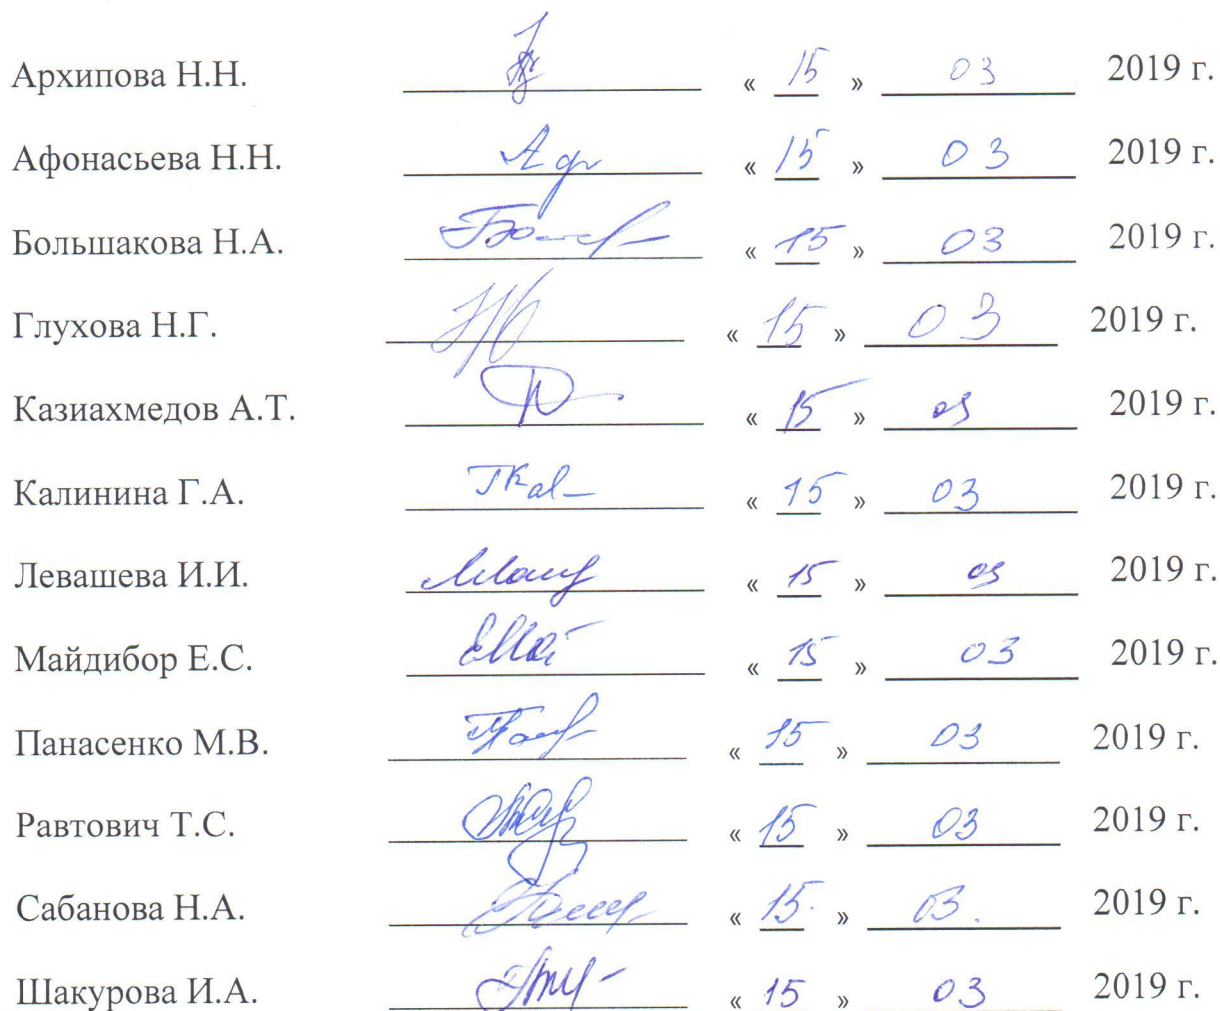 Архипова Н.Н. « 15 » 03 2019 г.
Афонасьева Н.Н. « 15 » 03 2019 г.
Большакова Н.А. « 15 » 03 2019 г.
Глухова Н.Г. « 15 » 03 2019 г.
Казиахмедов А.Т. « 15 » 03 2019 г.
Калинина Г.А. « 15 » 03 2019 г.
Левашева И.И. « 15 » 03 2019 г.
Майдибор Е.С. « 15 » 03 2019 г.
Панасенко М.В. « 15 » 03 2019 г.
Равтович Т.С. « 15 » 03 2019 г.
Сабанова Н.А. « 15. » 03. 2019 г.
Шакурова И.А. « 15 » 03 2019 г.